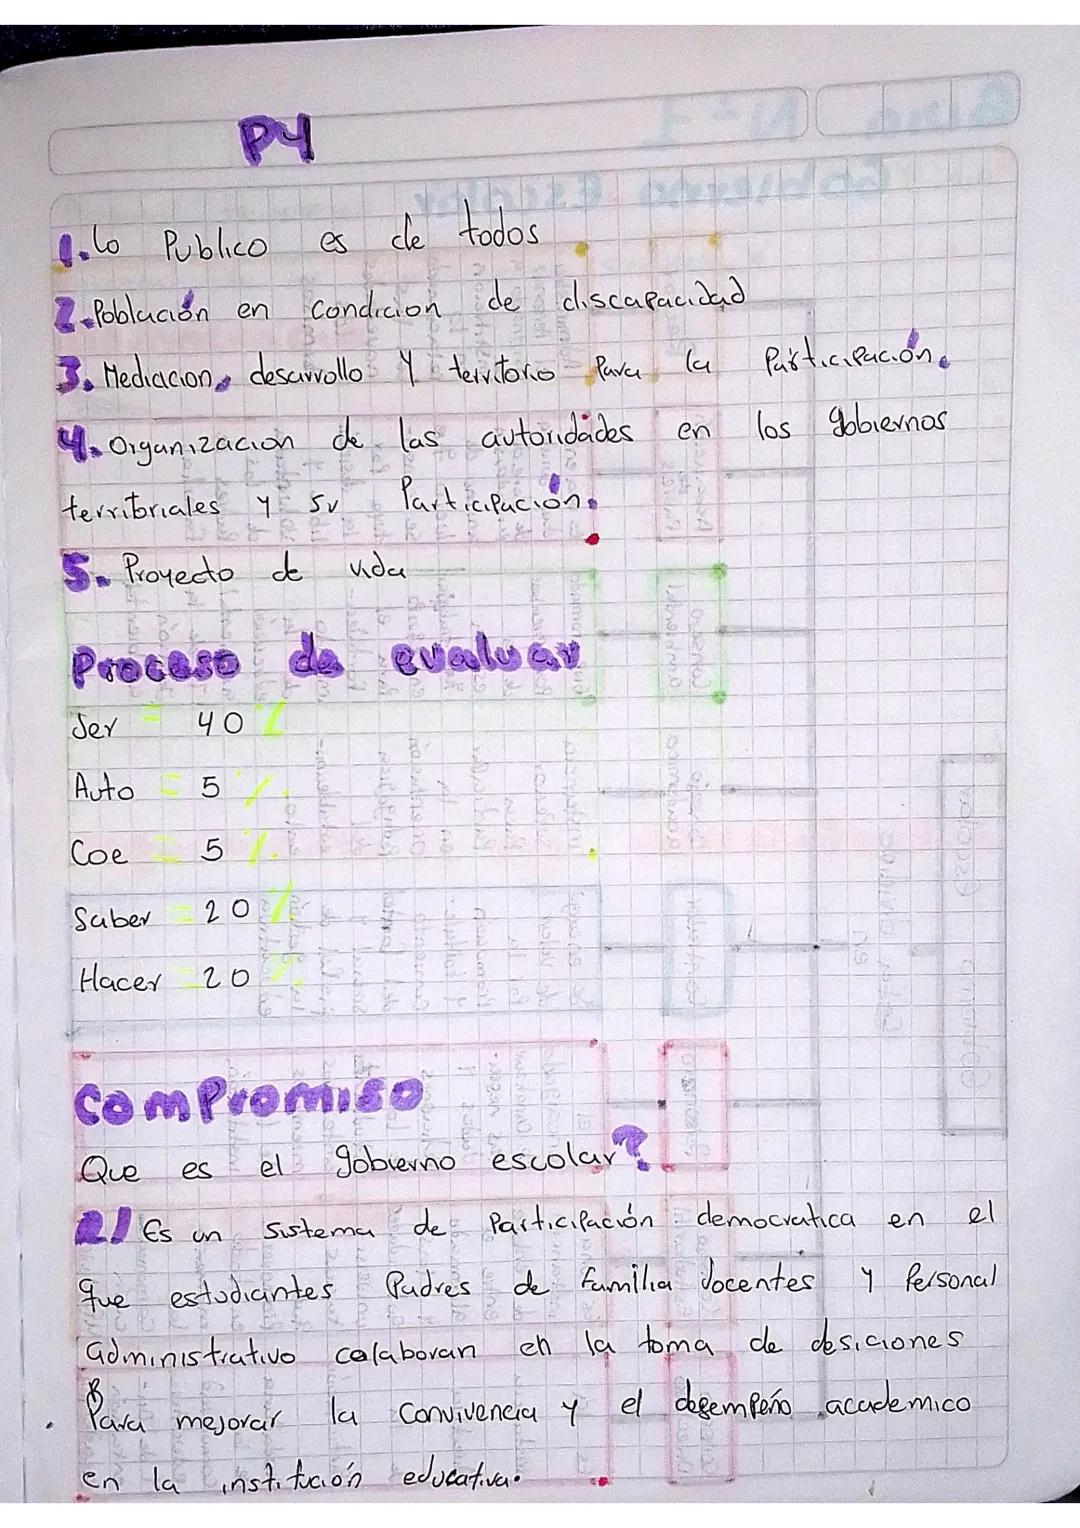 P4
1. Lo Publico es de todos
2. Población en Condicion de discapacidad
3. Mediacion, desarrollo Y territorio Para la Participación.
4. Organizacion de las autoridades en los gobiernos
territoriales y su Participación.
5. Proyecto de vida
Proceso de evaluar
Ser = 40 %
Auto = 5 %
Coe = 5 %
Saber = 20 %
Hacer = 20 %
Compromiso
Que es el gobierno escolar?
R/ Es un sistema de Participación democratica en el
que estudiantes Padres de Familia docentes y Personal
administrativo colaboran en la toma de desiciones
Para mejorar la Convivencia y el desempeño academico
en la institución educativa.